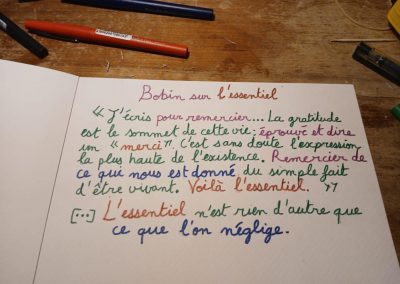 Bobin sur l'essentiel
« J'écris pour remercier... La gratitude
est le sommet de cette vie : éprouvé et dire
un « merci ». C'est sans doute l'expression
la plus haute de l'existence. Remercier de
ce que nous est donné, du simple fait
d'être vivant. Voilà l'essentiel. »
[...] L'essentiel n'est rien d'autre que
ce que l'on néglige.